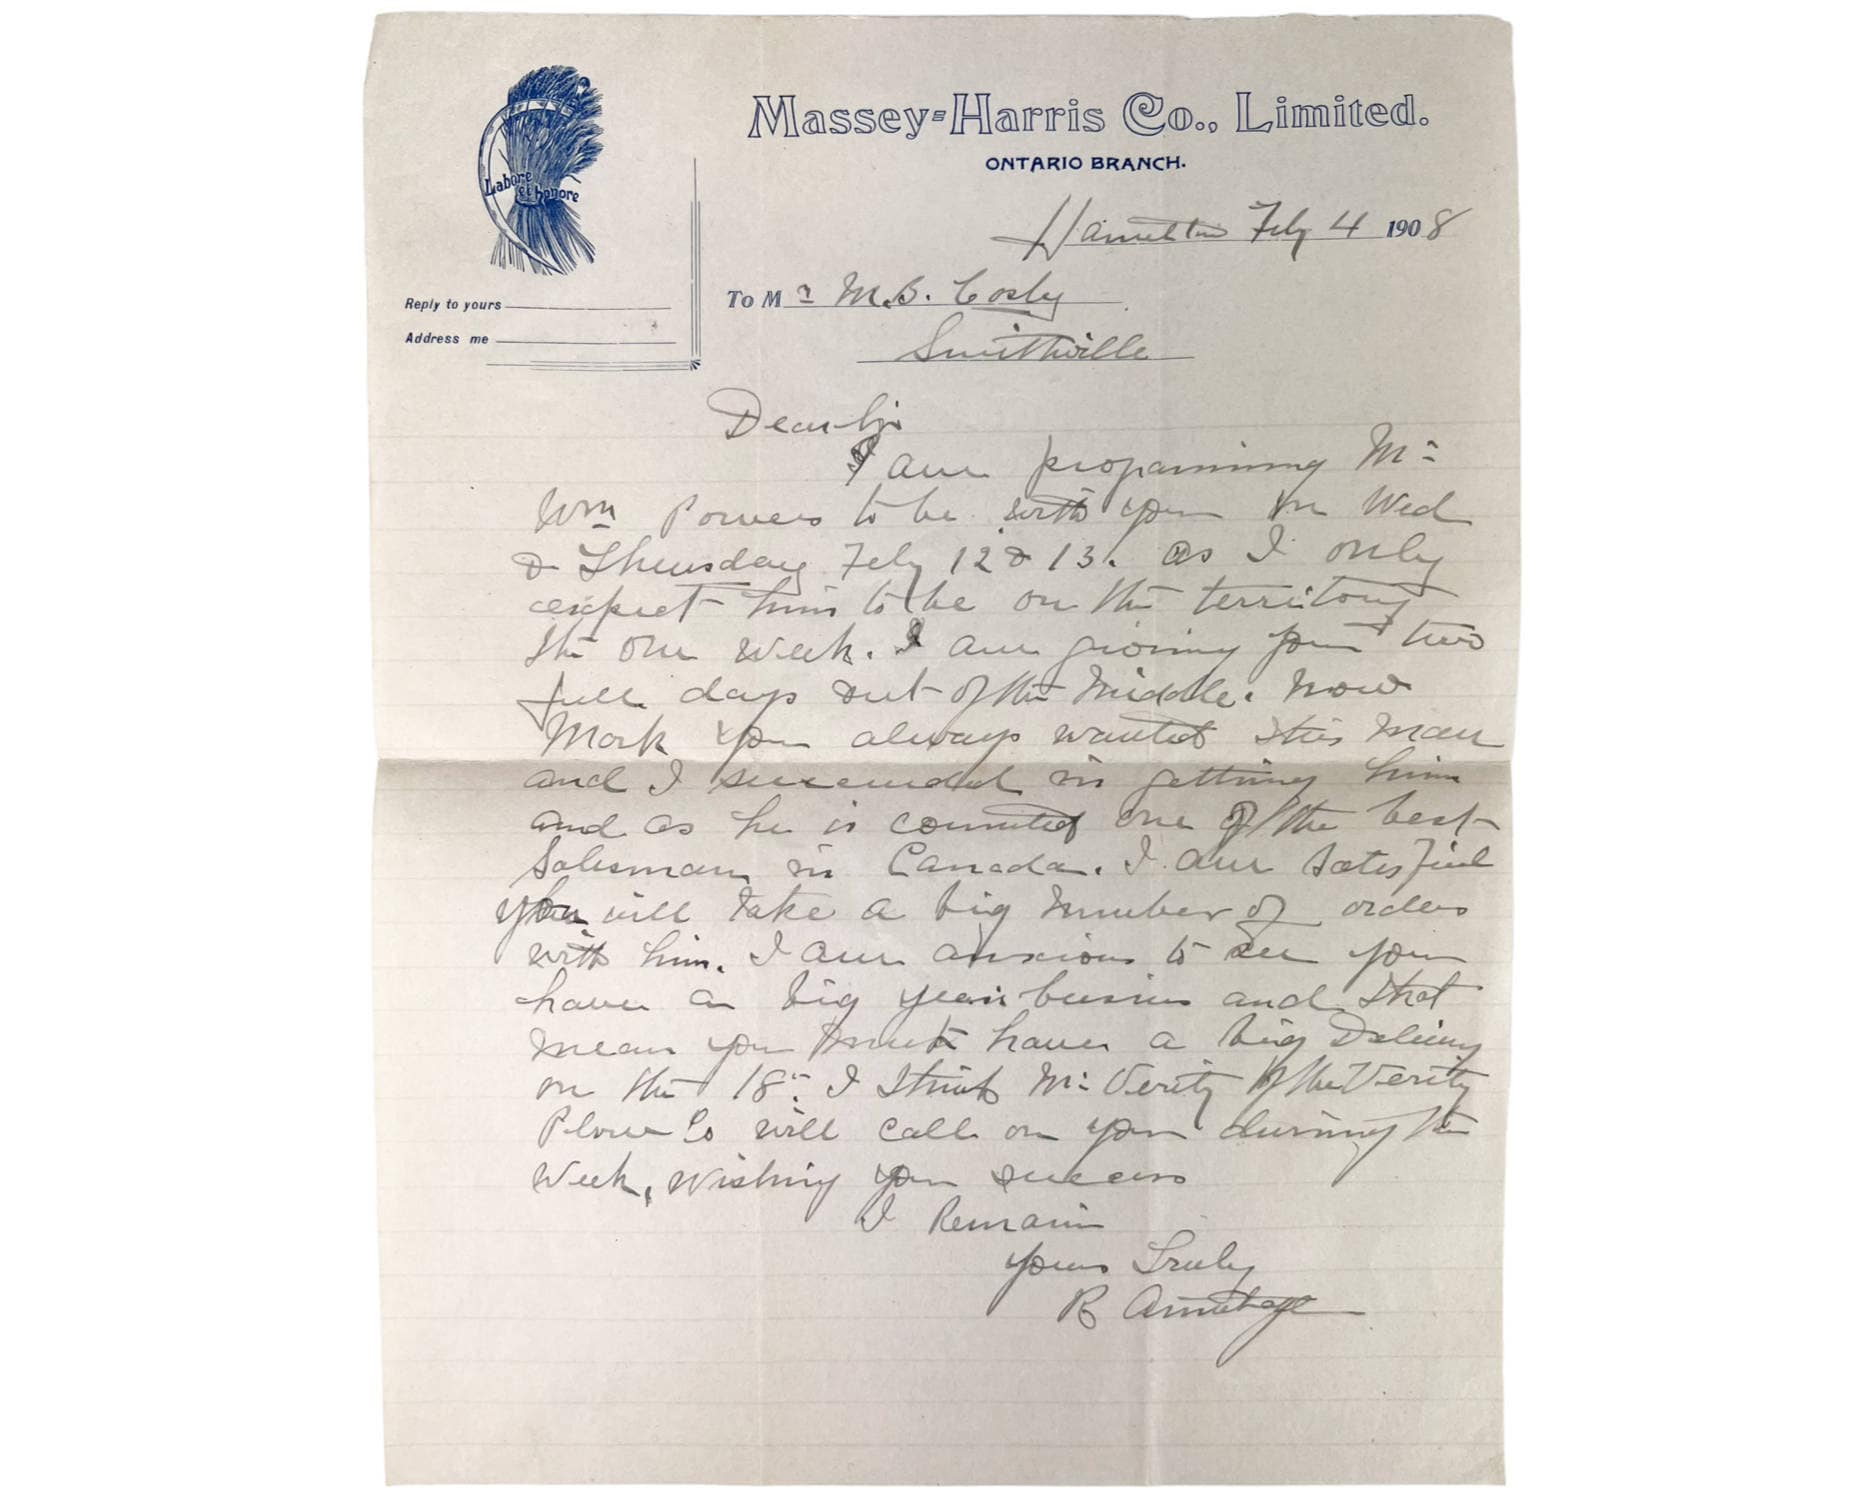 Labore
et honore
Massey-Harris Co., Limited.
ONTARIO BRANCH.
Hamilton Feby 4 1908
Reply to yours
Address me
To Mr M.B. Cosby
Smithville
Dear Sir
I am programming Mr
Wm Powers to be with you on Wed
& Thursday Feby 12 & 13. as I only
expect him to be on the territory
the one week. I am giving you two
full days out of the middle. Now
Mark you always wanted this man
and I succeeded in getting him
and as he is counted one of the best
Salesman in Canada. I am satisfied
you will take a big number of orders
with him. I am anxious to see you
have a big years business and that
mean you must have a big Delivery
on the 18th. I think Mr Verity of the Verity
Plow Co will call on you during the
week, wishing you success
I Remain
yours Truly
R Armitage